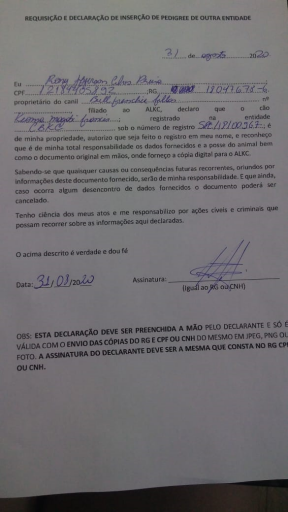 REQUISIÇÃO E DECLARAÇÃO DE INSERÇÃO DE PEDIGREE DE OUTRA ENTIDADE
31 de agosto 2020
Eu
CPF RG
proprietário do canil nº
filiado ao ALKC, declaro que o cão
registrado na entidade
CBKC sob o número de registro é
de minha propriedade, autorizo que seja feito o registro em meu nome, e reconheço
que é de minha total responsabilidade os dados fornecidos e a posse do animal bem
como o documento original em mãos, onde forneço a cópia digital para o ALKC.
Sabendo-se que quaisquer causas ou consequências futuras recorrentes, oriundos por
informações deste documento fornecido, serão de minha responsabilidade. E que ainda,
caso ocorra algum desencontro de dados fornecidos o documento poderá ser
cancelado.
Tenho ciência dos meus atos e me responsabilizo por ações cíveis e criminais que
possam recorrer sobre as informações aqui declaradas.
O acima descrito é verdade e dou fé
Data: Assinatura:
(Igual ao RG ou CNH)
OBS: ESTA DECLARAÇÃO DEVE SER PREENCHIDA A MÃO PELO DECLARANTE E SÓ É
VÁLIDA COM O ENVIO DAS CÓPIAS DO RG E CPF OU CNH DO MESMO EM JPEG, PNG OU
FOTO. A ASSINATURA DO DECLARANTE DEVE SER A MESMA QUE CONSTA NO RG CPF
OU CNH.